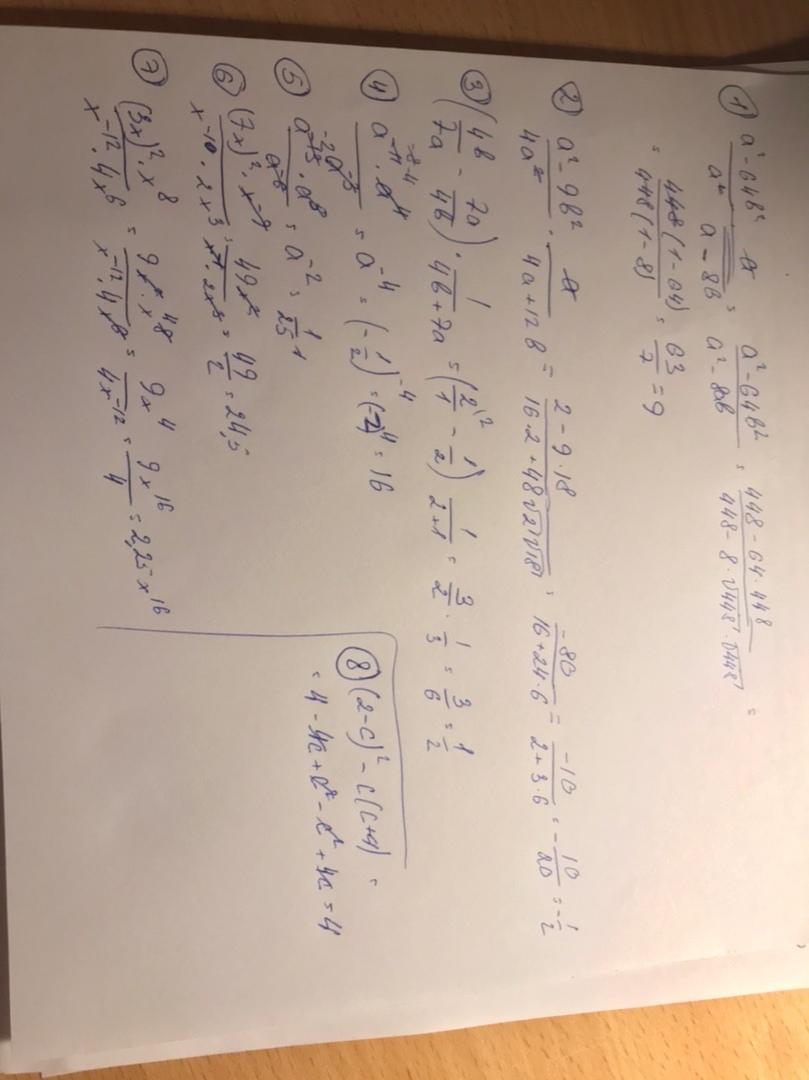 1) a² - 64b² / a² · a / a - 8b = a² - 64b² / a² - 8ab = 448 - 64·448 / 448 - 8·√448·√448 =
= 448(1-64) / 448(1-8) = 63/7 = 9
2) a² - 9b² / 4a² · a / 4a+12b = 2 - 9·18 / 16·2 + 48√2√18 = -80 / 16+24·6 = -10 / 2+3·6 = -10/20 = -1/2
3) (4b/7a - 7a/4b) · 1 / 4b+7a = (2/1 \² - 1/2) 1 / 2+1 = 3/2 · 1/3 = 3/6 = 1/2
4) a⁻¹¹ · a⁴ / = a⁻⁴ = (-1/2)⁻⁴ = (-2)⁴ = 16
5) · a⁸ / a⁻⁶ = a⁻² = 1/25
6) (7x)² · x⁻⁹ / x⁻¹⁰ · 2x³ = 49x² / = 49/2 = 24,5
7) (3x)² · x⁸ / x⁻¹² · 4x⁶ = 9x² · x⁸ / x⁻¹² · 4x⁶ = 9x⁴ / 4x⁻¹² = 9x¹⁶ / 4 = 2,25x¹⁶
8) (2-c)² - c(c+4) =
= 4 - 4c + c² - c² + 4c = 4